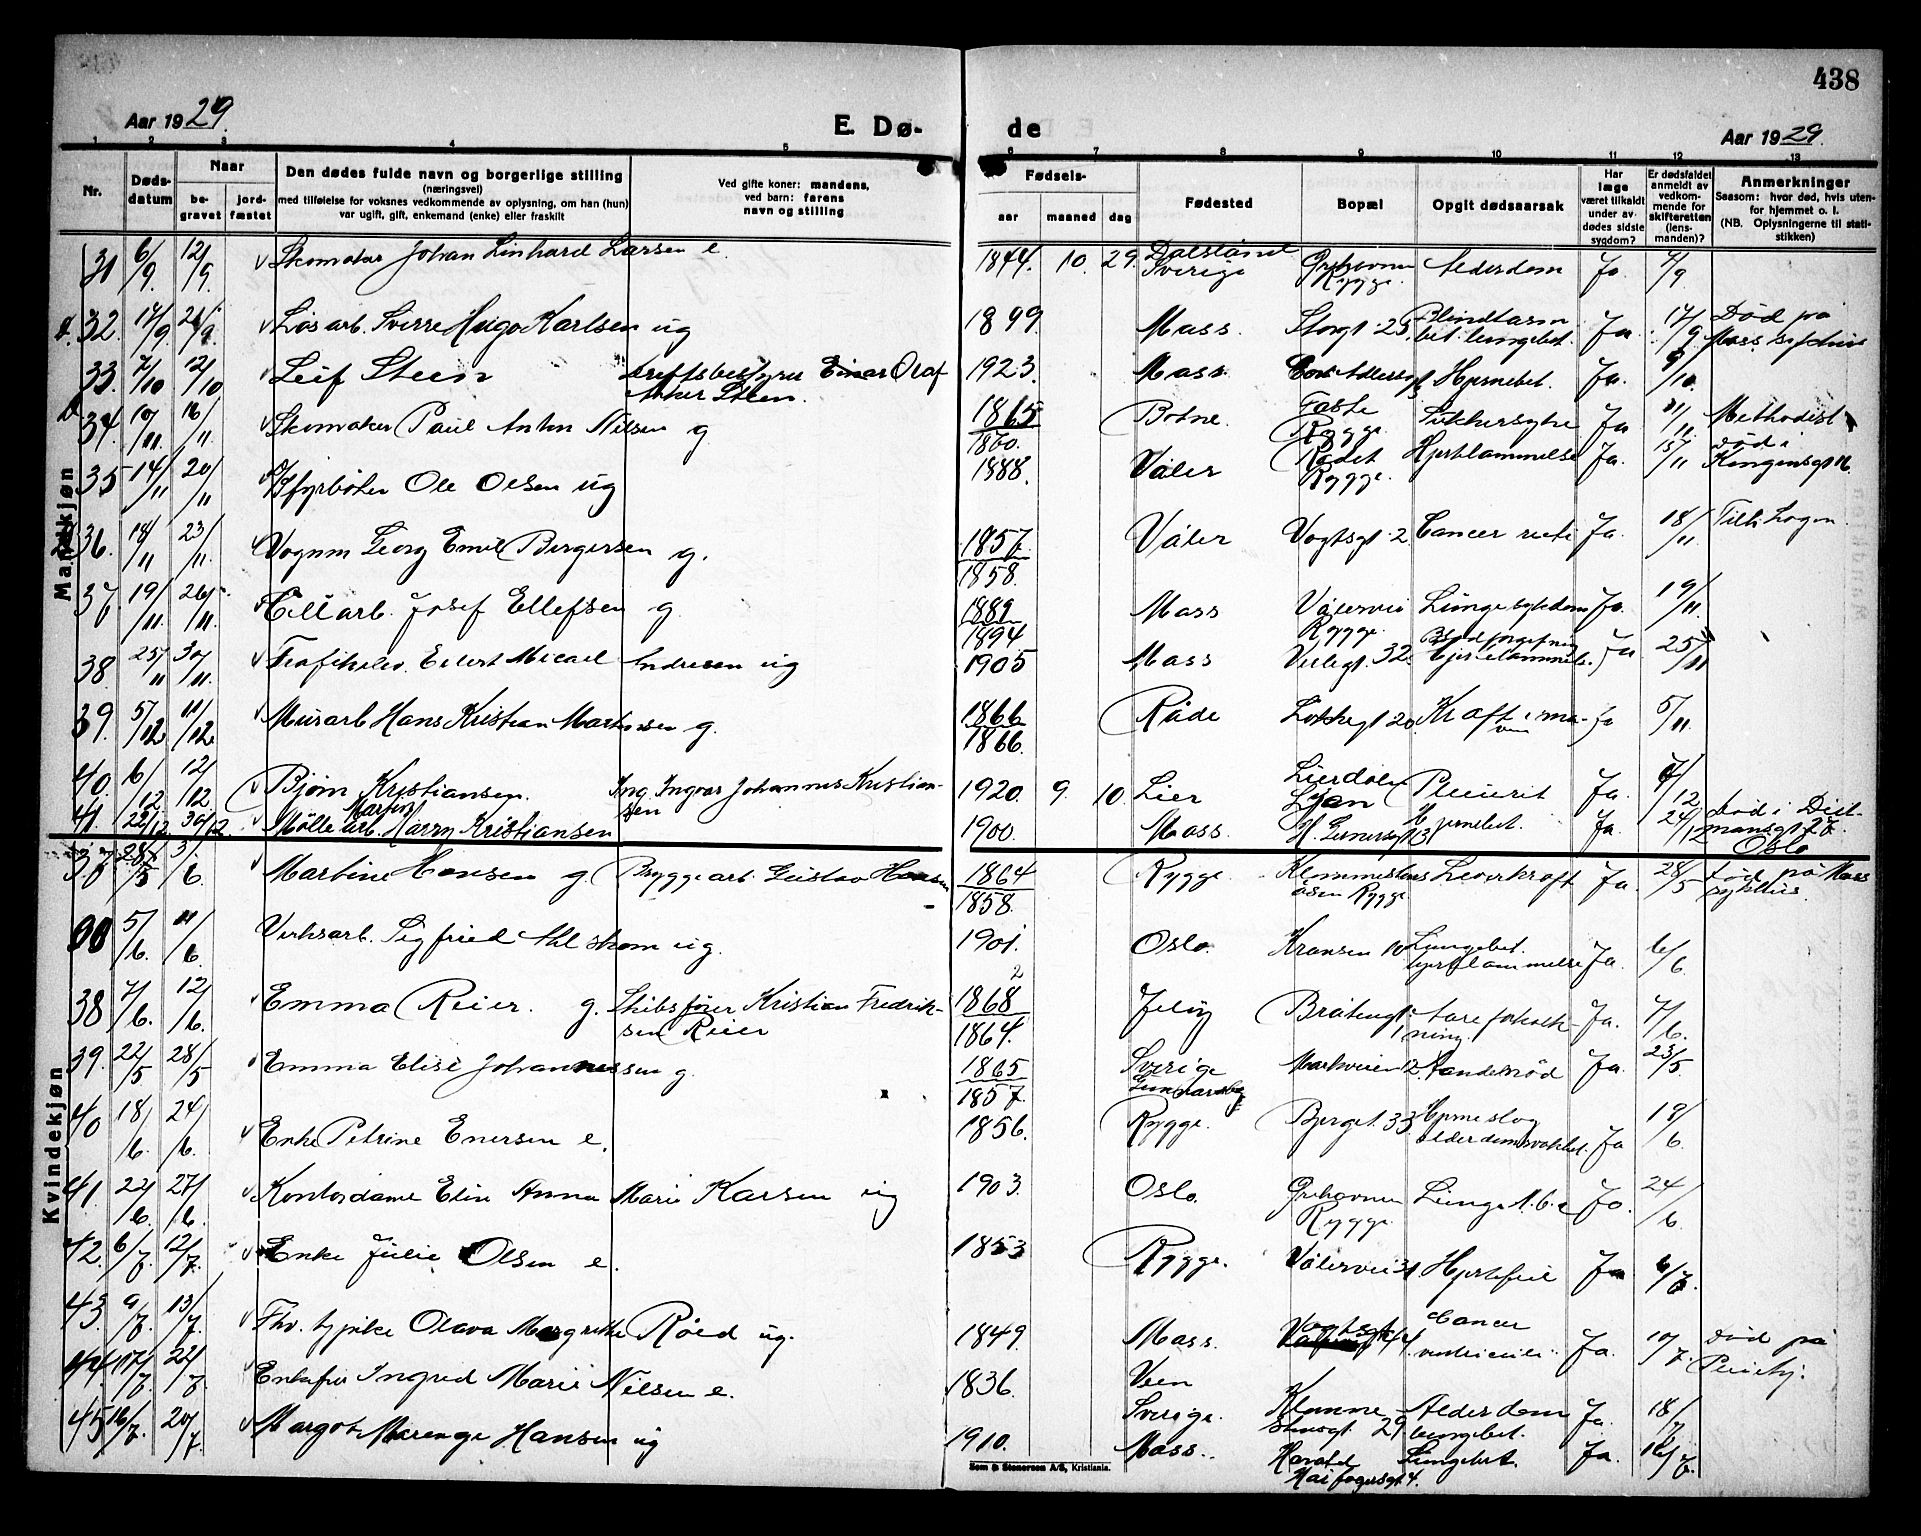 438
Aar 1929.
E. Dø- de
Aar 1929.
1 2 3 4 5 6 7 8 9 10 11 12 13
Nr.
Døds-
datum
Naar
be-
gravet
jord-
fæstet
Den dødes fulde navn og borgerlige stilling
(næringsvei)
med tilføielse for voksnes vedkommende av oplysning, om han (hun)
var ugift, gift, enkemand (enke) eller fraskilt
Ved gifte koner: mandens,
ved barn: farens
navn og stilling
Fødsels-
aar maaned dag
Fødested
Bopæl
Opgit dødsaarsak
Har
læge
været tilkaldt
under av-
dødes sidste
sygdom?
Er dødsfaldet
anmeldt av
vedkom-
mende for
skifteretten
(lens-
manden)?
Anmerkninger
Saasom: hvor død, hvis uten-
for hjemmet o. l.
(NB. Oplysningerne til stati-
stikken)
Mandkjøn
31 6/9 12/9 Skomaker Johan Linhard Larsen e. 1844. 10. 29. Dalsland Sverige Grehavnen Rygge. Alderdom Ja 7/9
32. 17/9 21/9 Løsarb. Sverre Hugo Karlsen ug 1899. Moss. Storgt. 25. Blindtarm bet. lungebet. Ja. 17/9 Død på Moss sykehus
33. 7/10 12/10 Leif Steen Driftsbestyrer Einar Olaf Aker Steen. 1923. Moss Hjernebet. Ja. 8/10
34. 10/11 16/11 Skomaker Paul Anton Nilsen g 1865 1860. Botne. Faste Rygge Sukkersyke Ja 11/11 Methodist
35 14/11 20/11 Fyrbøter Ole Olsen ug 1888. Våler Rødet Rygge. Hjertelammelse Ja. 15/11 Død i Kongensgt 16
36. 14/11 23/11 Vognm Georg Emil Bergersen g. 1857. 1858. Våler Vogtsgt. 2. Cancer recti Ja. 18/11 Till. Logen
37. 19/11 26/11. Cell arb. Josef Ellefsen g 1889 1894 Moss Vålervei Rygge. Lungesykdom Ja. 19/11.
38 25/11 30/11. Trafikelev. Eilert Micael Andresen ug 1905 Moss Verlegt. 32. Blodforgiftning Hjertelammelse. Ja 25/11
39. 5/12 11/12 Murarb Hans Kristian Martinsen g. 1866 1866. Råde 20. Kræft i ma- ven Ja 5/11.
40. 6/12 12/12. Bjørn Kristiansen. Ing. Ingvar Johannes Kristian- sen 1920. 9 10. Lier Lierdalen Ljan Pleurit Ja. 7/12
41. 22/12 30/12 Mølle arb. Harry Kristiansen 1900. Moss. Hjernebet. Ja. 24/12 Død i Oslo
Kvindekjøn
37 28/5 3/6. Martine Hansen g. Bryggearb. Gustav Hansen 1864 1858. Rygge. Leverkræft Ja. 28/5 Død på Moss sykehus.
00 5/6. 11/6. Verksarb. Sigfried Ahlstrom ug. 1901. Oslo. Kransen 10 Lungebet. hjertelammelse Ja. 6/6
38 7/6. 12/6. Emma Reier. g. Skibsfører Kristian Fredrik- sen Reier 1868 1864. Jeløy Bråtengt. 1 Aareforkalk- ning. Ja. 7/6.
39. 22/5 28/5 Emma Elise Johannessen g. 1865 1857. Sverige Markveien 12. Åndenød Ja. 23/5
40 18/6. 24/6. Enke Petrine Enersen e. 1856. Rygge. Berget. 33 Hjerneslag alderdomssvakhet. Ja 19/6.
41. 22/6. 27/6. Kontordame Elin Anna Marie Karsen ug 1903. Oslo. Grehavnen Rygge Lunge t.b.c Ja. 24/6.
42. 6/7. 12/7. Enke Julie Olsen e. 1853 Rygge. Vålervei 31 Hjertefeil Ja 6/7.
43. 9/7. 13/7. Fhv. typike Olava Margrethe Røed ug. 1849. Moss. Vogtsgt 44 Cancer ventriculi Ja. 10/7. Død på Pleiehj.
44. 17/7 22/7 Enkefru Ingrid Marie Nilsen e. 1836. Veen Sverige. Klommestensgt 29. Alderdom lungebet. Ja. 18/7
45 16/7. 20/7. Margot Marenge Hansen ug 1910. Moss. Harald Hårfagersgt. 4. Lungebet. Ja. 16/7.
Sem & Stenersen A/S, Kristiania.